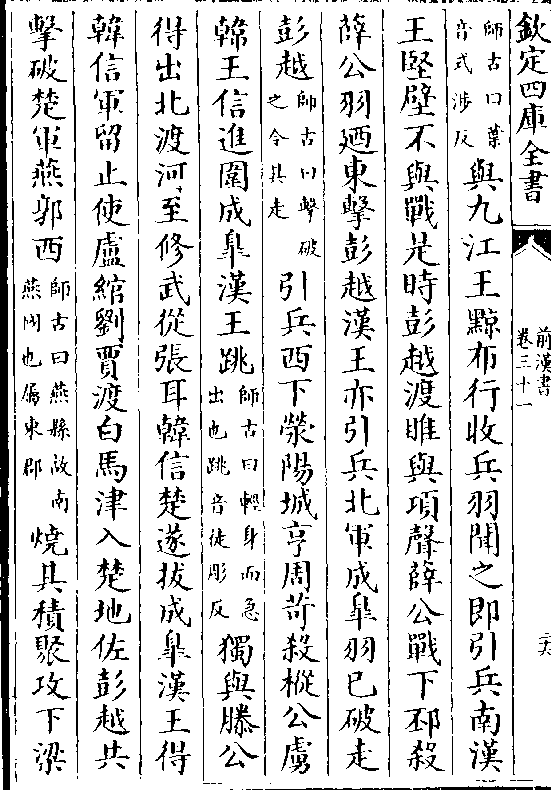 欽定四庫全書
前漢書
卷三十一
二六
師古曰葉
音式涉反
與九江王黥布行收兵羽聞之即引兵南漢
王堅壁不與戰是時彭越渡睢與項聲薛公戰下邳殺
薛公羽廼東擊彭越漢王亦引兵北軍成臯羽已破走
彭越
師古曰擊破
之令其走
引兵西下滎陽城亨周苛殺樅公虜
韓王信進圍成臯漢王跳
師古曰輕身而急
出也跳音徒彫反
獨與滕公
得出北渡河至修武從張耳韓信楚遂拔成臯漢王得
韓信軍留止使盧綰劉賈渡白馬津入楚地佐彭越共
擊破楚軍燕郭西
師古曰燕縣故南
燕國也屬東郡
燒其積聚攻下梁